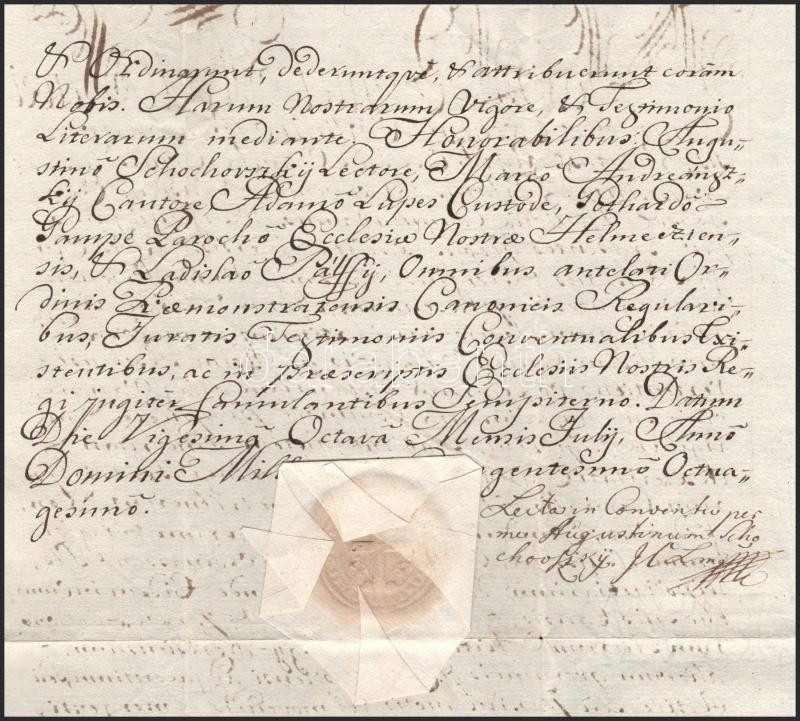 & Ordinarunt, dederuntqve, & attribuerunt coràm
Nobis. Harum Nostrarum Vigore, & Testimonio
Literarum mediante. Honorabilibus Augu-
stinô Schochovszkij Lectore, Marcô Andreánszt-
kij Cantore, Adamô Lapes Custode, Gothardô
Pampe Parochô Ecclesiæ Nostræ Helmecien-
sis, & Ladislaô Pálffij, Omnibus antelati Or-
dinis Præmonstratensis Canonicis Regulari-
bus, Juratis Testimoniis Conventualibus Exi-
stentibus, ac in Præscriptis Ecclesiis Nostris Re-
gi jugitèr famulantibus Sempiterno. Datum
Die Vigesimâ Octavâ Mensis Julij, Annô
Domini Mill gentesimô Octua-
gesimô.
Lecta in Conventu per
me Augustinum Scho
chovszky